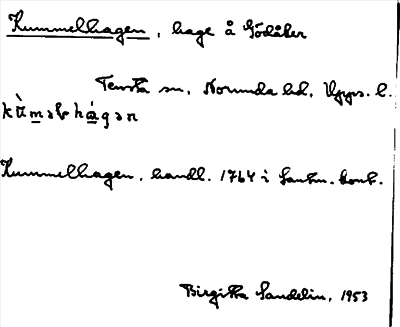 Kummelhagen, hage å Gödåker
Tensta sn, Norunda hd, Upps. l.
kùməlhágən
Kummelhagen, handl. 1764 i Lantm. kont.
Birgitta Sandelin, 1953